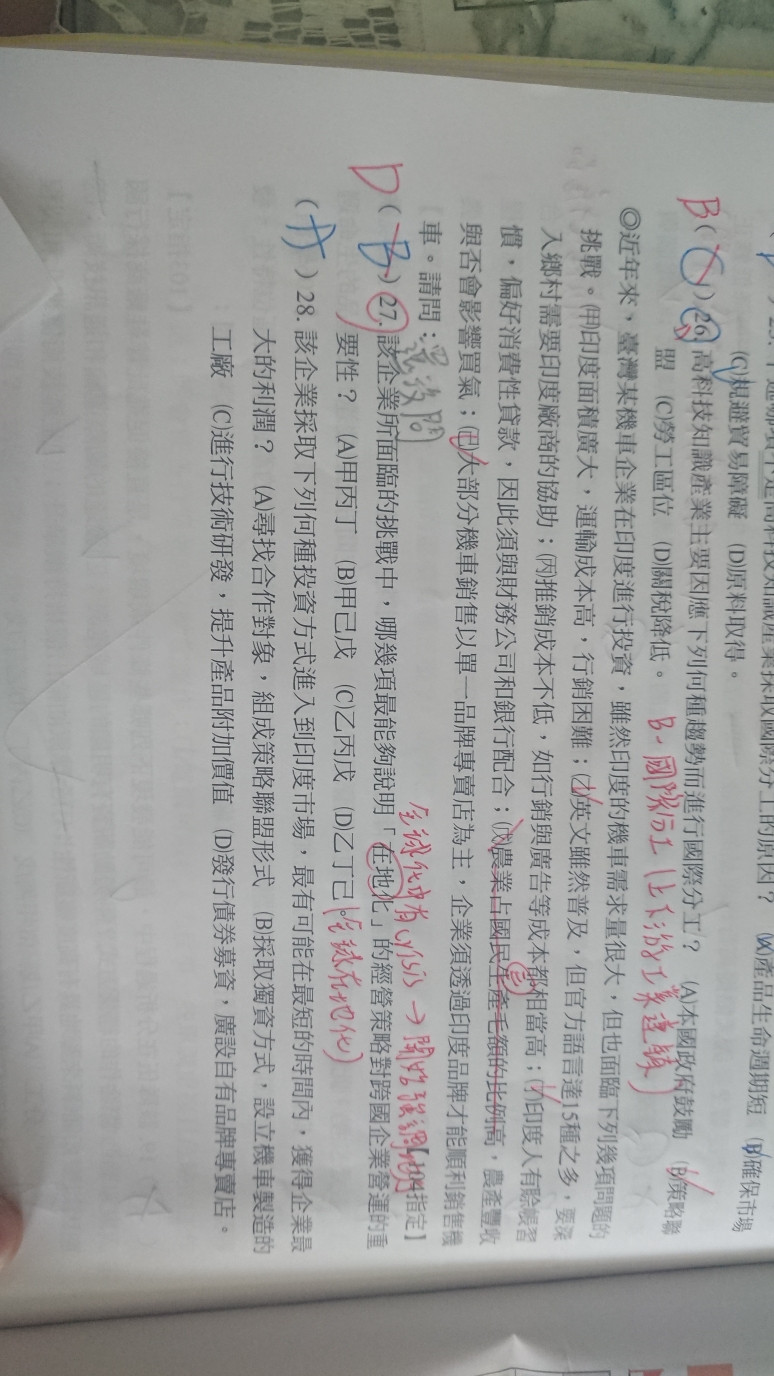 下列哪項不是高科技知識產業採取國際分工的原因？ (A)產品生命週期短 (B)確保市場
(C)規避貿易障礙 (D)原料取得。
B ( C ) 26. 高科技知識產業主要因應下列何種趨勢而進行國際分工？ (A)本國政府鼓勵 (B)策略聯
盟 (C)勞工區位 (D)關稅降低。 B-國際分工(上下游工業連鎖)
◎近年來，臺灣某機車企業在印度進行投資，雖然印度的機車需求量很大，但也面臨下列幾項問題的
挑戰。(甲)印度面積廣大，運輸成本高，行銷困難；(乙)英文雖然普及，但官方語言達15種之多，要深
入鄉村需要印度廠商的協助；(丙)推銷成本不低，如行銷與廣告等成本都相當高；(丁)印度人有賒帳習
慣，偏好消費性貸款，因此須與財務公司和銀行配合；(戊)農業占國民生產毛額的比例高，農產豐收
與否會影響買氣；(己)大部分機車銷售以單一品牌專賣店為主，企業須透過印度品牌才能順利銷售機
車。請問： 【104指定】
還沒問
全球化中有crisis → 開始強調
D ( B ) 27. 該企業所面臨的挑戰中，哪幾項最能夠說明「在地化」的經營策略對跨國企業營運的重
要性？ (A)甲丙丁 (B)甲己戊 (C)乙丙戊 (D)乙丁己。 (全球在地化)
( A ) 28. 該企業採取下列何種投資方式進入到印度市場，最有可能在最短的時間內，獲得企業最
大的利潤？ (A)尋找合作對象，組成策略聯盟形式 (B)採取獨資方式，設立機車製造的
工廠 (C)進行技術研發，提升產品附加價值 (D)發行債券募資，廣設自有品牌專賣店。